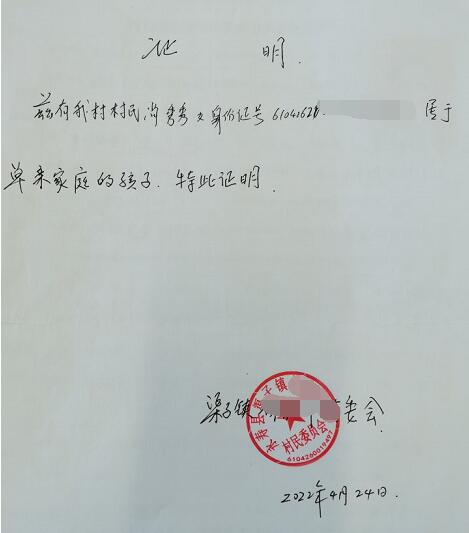 证 明.
兹有我村村民尚秀秀女身份证号 61042621 属于
单亲家庭的孩子. 特此证明.
渠子镇 委会
永寿县渠子镇
村民委员会
6104260019497
2022年4月24日.